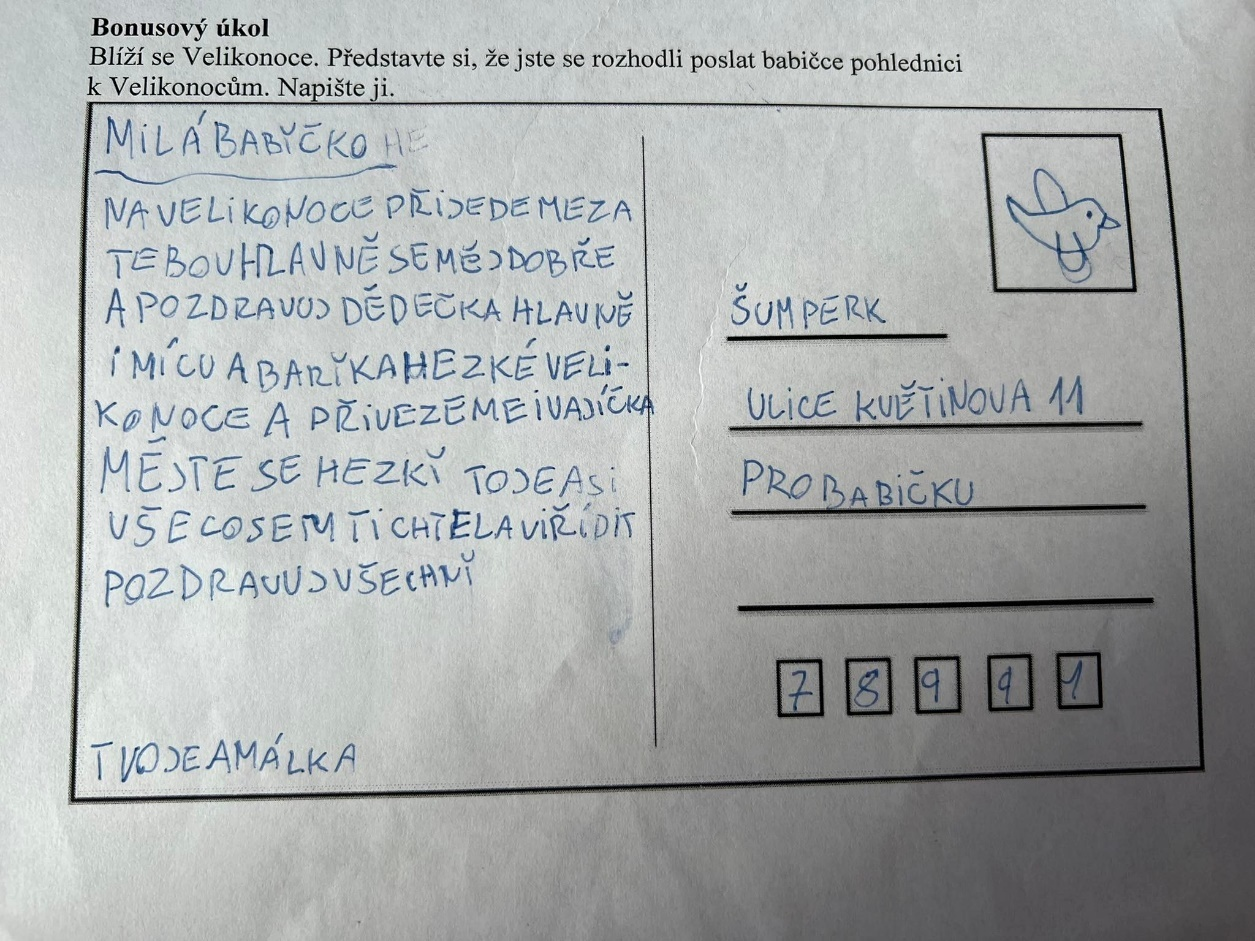 Bonusový úkol
Blíží se Velikonoce. Představte si, že jste se rozhodli poslat babičce pohlednici
k Velikonocům. Napište ji.
MILÁ BABIČKO HE
NA VELIKONOCE PŘIJEDEME ZA
TEBOU HLAVNĚ SE MĚJ DOBŘE
A POZDRAVUJ DĚDEČKA HLAVNĚ
I MÍCU A BAŘÍKA HEZKÉ VELI-
KONOCE A PŘIVEZEME I VAJÍČKA
MĚJTE SE HEZKĬ TO JE ASI
VŠE CO SEM TI CHTELA VIŘÍDIT
POZDRAVUJ VŠECHNĬ
TVOJE AMÁLKA
ŠUMPERK
ULICE KVĚŤINOVA 11
PRO BABIČKU
7 8 9 9 1